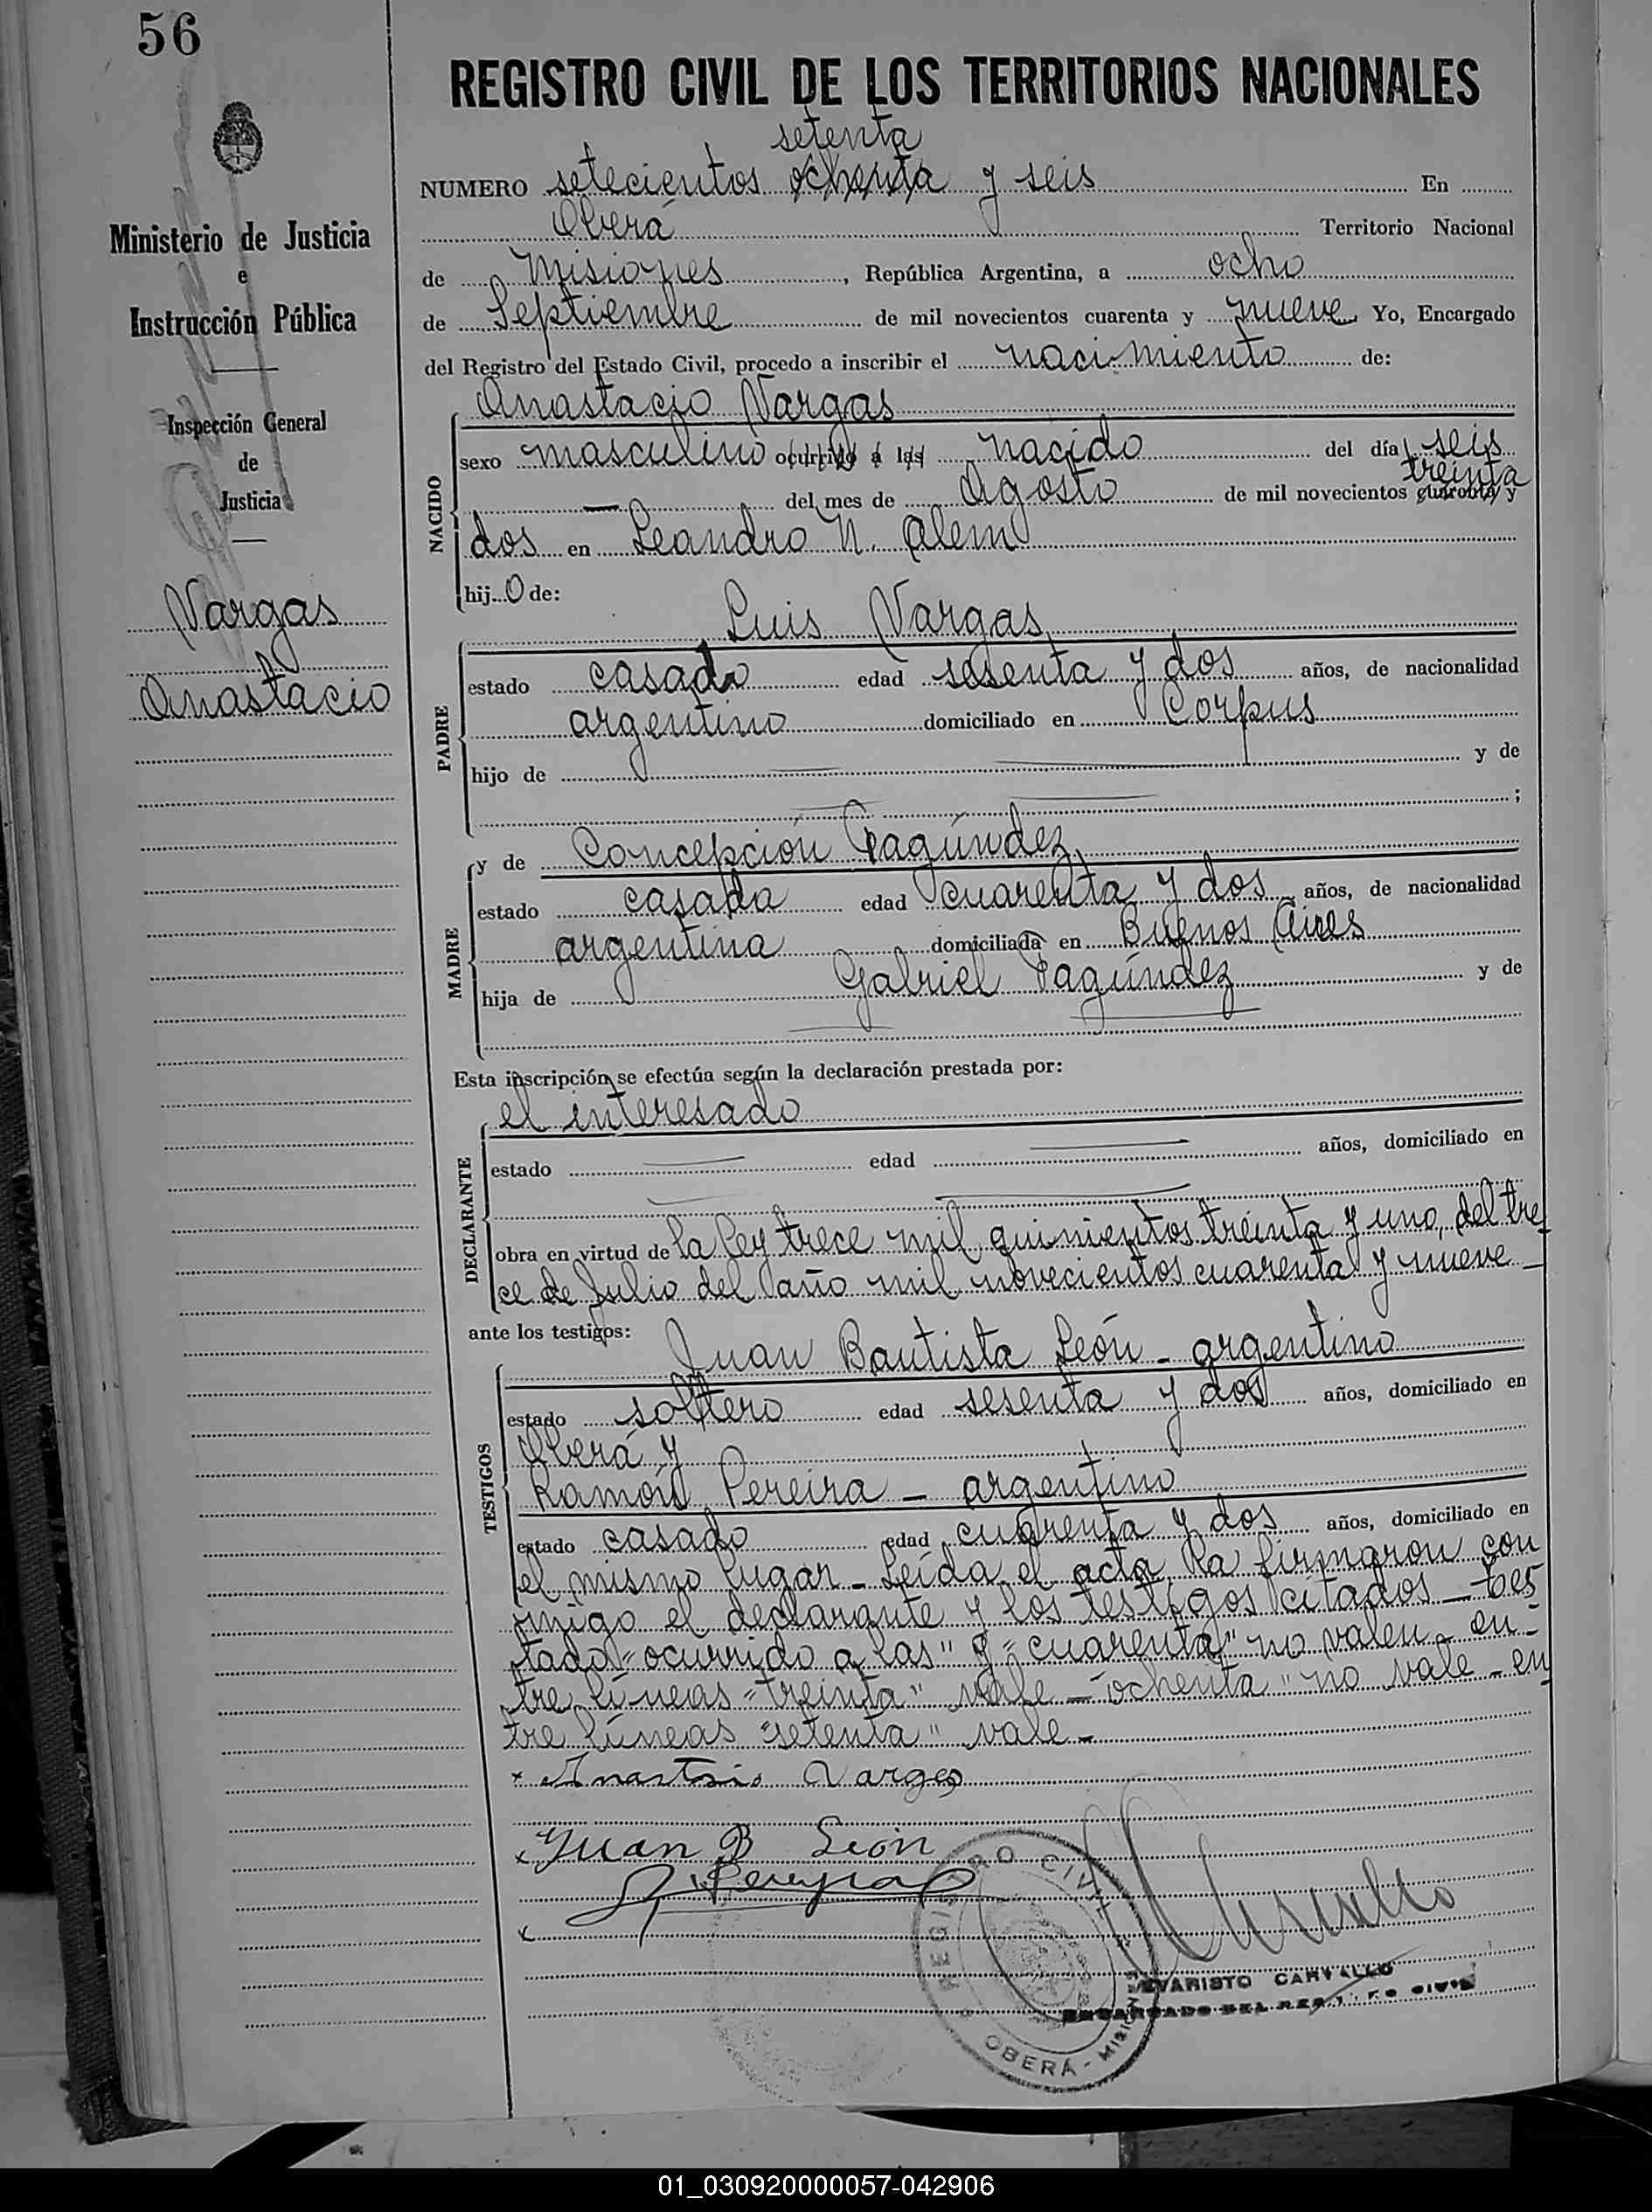 56
REGISTRO CIVIL DE LOS TERRITORIOS NACIONALES
Ministerio de Justicia
e
Instrucción Pública
Inspección General
de
Justicia
Vargas
Anastacio
setenta
NUMERO setecientos ochenta y seis En
Oberá Territorio Nacional
de Misiones, República Argentina, a ocho
de Septiembre de mil novecientos cuarenta y nueve Yo, Encargado
del Registro del Estado Civil, procedo a inscribir el nacimiento de:
NACIDO
Anastacio Vargas
sexo masculino ocurrido a las nacido del día seis
treinta
— del mes de Agosto de mil novecientos cuarenta y
dos en Leandro N. Alem
hijo de:
PADRE
Luis Vargas
estado casado edad sesenta y dos años, de nacionalidad
argentino domiciliado en Corpus
hijo de — — y de
— — ;
MADRE
y de Concepción Fagúndez
estado casada edad cuarenta y dos años, de nacionalidad
argentina domiciliada en Buenos Aires
hija de Gabriel Fagúndez y de
— —
Esta inscripción se efectúa según la declaración prestada por:
DECLARANTE
el interesado
estado — edad — años, domiciliado en
— —
obra en virtud de la ley trece mil quinientos treinta y uno, del tre
ce de Julio del año mil novecientos cuarenta y nueve —
ante los testigos:
TESTIGOS
Juan Bautista León - argentino
estado soltero edad sesenta y dos años, domiciliado en
Oberá y
Ramón Pereira - argentino
estado casado edad cuarenta y dos años, domiciliado en
el mismo lugar - Leída el acta la firmaron con
migo el declarante y los testigos citados - Tes
tado = ocurrido a las" y "cuarenta" no valen - en-
tre líneas = "treinta" vale - "ochenta" no vale - en
tre líneas "setenta" vale -
x Anastasio Vargas
x Juan B León
R Pereyra
x
REGISTRO CIVIL
OBERÁ - MISIONES
EVARISTO CARVALLO
ENCARGADO DEL REGISTRO CIVIL
01_030920000057-042906